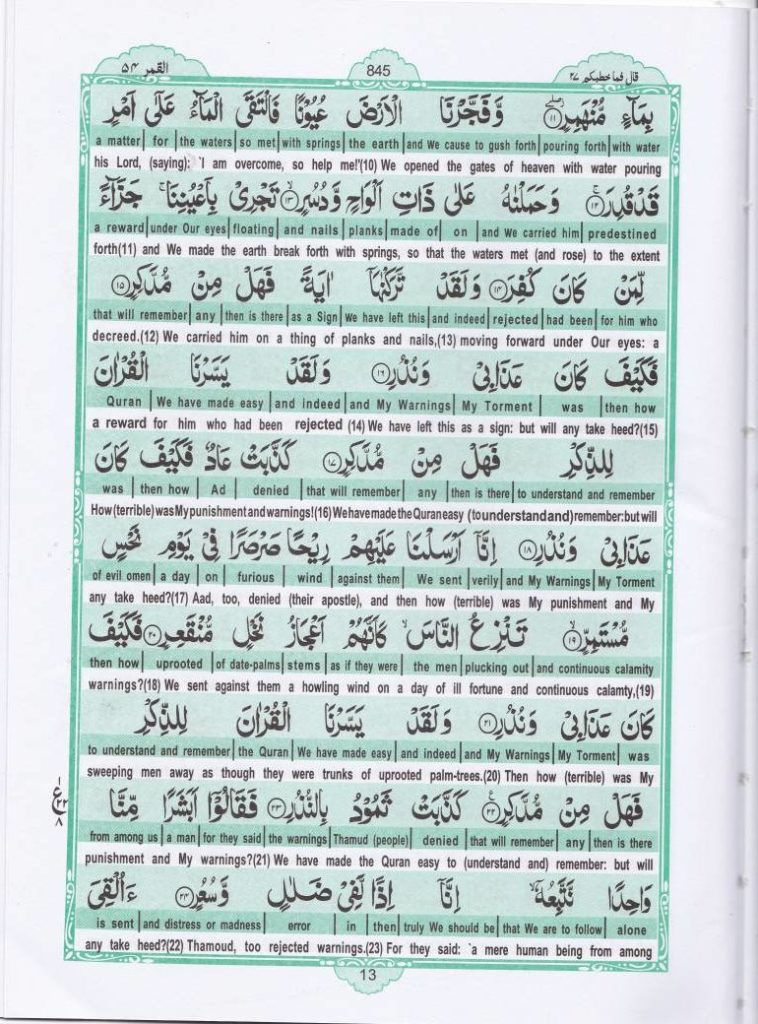 القمر ٥٤ 845 قال فما خطبكم ٢٧
بِمَآءٍ مُّنْهَمِرٍ ۝١١ وَّفَجَّرْنَا الْاَرْضَ عُيُوْنًا فَالْتَقَى الْمَآءُ عَلٰٓى اَمْرٍ
a matter | for | the waters | so met | with springs | the earth | and We cause to gush forth | pouring forth | with water
his Lord, (saying): `I am overcome, so help me!'(10) We opened the gates of heaven with water pouring
قَدْ قُدِرَ ۝١٢ وَحَمَلْنٰهُ عَلٰى ذَاتِ اَلْوَاحٍ وَّدُسُرٍ ۝١٣ تَجْرِىْ بِاَعْيُنِنَا ۚ جَزَآءً
a reward | under Our eyes | floating | and nails | planks | made of | on | and We carried him | predestined
forth(11) and We made the earth break forth with springs, so that the waters met (and rose) to the extent
لِّمَنْ كَانَ كُفِرَ ۝١٤ وَلَقَدْ تَّرَكْنٰهَآ اٰيَةً فَهَلْ مِنْ مُّدَّكِرٍ ۝١٥
that will remember | any | then is there | as a Sign | We have left this | and indeed | rejected | had been | for him who
decreed.(12) We carried him on a thing of planks and nails,(13) moving forward under Our eyes: a
فَكَيْفَ كَانَ عَذَابِىْ وَنُذُرِ ۝١٦ وَلَقَدْ يَسَّرْنَا الْقُرْاٰنَ
Quran | We have made easy | and indeed | and My Warnings | My Torment | was | then how
a reward for him who had been rejected (14) We have left this as a sign: but will any take heed?(15)
لِلذِّكْرِ فَهَلْ مِنْ مُّدَّكِرٍ ۝١٧ كَذَّبَتْ عَادٌ فَكَيْفَ كَانَ
was | then how | Ad | denied | that will remember | any | then is there | to understand and remember
How (terrible) was My punishment and warnings!(16) We have made the Quran easy (to understand and) remember: but will
عَذَابِىْ وَنُذُرِ ۝١٨ اِنَّآ اَرْسَلْنَا عَلَيْهِمْ رِيْحًا صَرْصَرًا فِىْ يَوْمِ نَحْسٍ
of evil omen | a day | on | furious | wind | against them | We sent | verily | and My Warnings | My Torment
any take heed?(17) Aad, too, denied (their apostle), and then how (terrible) was My punishment and My
مُّسْتَمِرٍّ ۝١٩ تَنْزِعُ النَّاسَ ۙ كَاَنَّهُمْ اَعْجَازُ نَخْلٍ مُّنْقَعِرٍ ۝٢٠ فَكَيْفَ
then how | uprooted | of date-palms | stems | as if they were | the men | plucking out | and continuous calamity
warnings?(18) We sent against them a howling wind on a day of ill fortune and continuous calamty,(19)
كَانَ عَذَابِىْ وَنُذُرِ ۝٢١ وَلَقَدْ يَسَّرْنَا الْقُرْاٰنَ لِلذِّكْرِ
to understand and remember | the Quran | We have made easy | and indeed | and My Warnings | My Torment | was
sweeping men away as though they were trunks of uprooted palm-trees.(20) Then how (terrible) was My
فَهَلْ مِنْ مُّدَّكِرٍ ۝٢٢ كَذَّبَتْ ثَمُوْدُ بِالنُّذُرِ ۝٢٣ فَقَالُوْٓا اَبَشَرًا مِّنَّا
from among us | a man | for they said | the warnings | Thamud (people) | denied | that will remember | any | then is there
punishment and My warnings?(21) We have made the Quran easy to (understand and) remember: but will
وَاحِدًا نَّتَّبِعُهٗٓ ۙ اِنَّآ اِذًا لَّفِىْ ضَلٰلٍ وَّسُعُرٍ ۝٢٤ ءَاُلْقِىَ
is sent | and distress or madness | error | in | then | truly We should be | that We are to follow | alone
any take heed?(22) Thamoud, too rejected warnings.(23) For they said: `a mere human being from among
13
١
ع ٢٢
٨